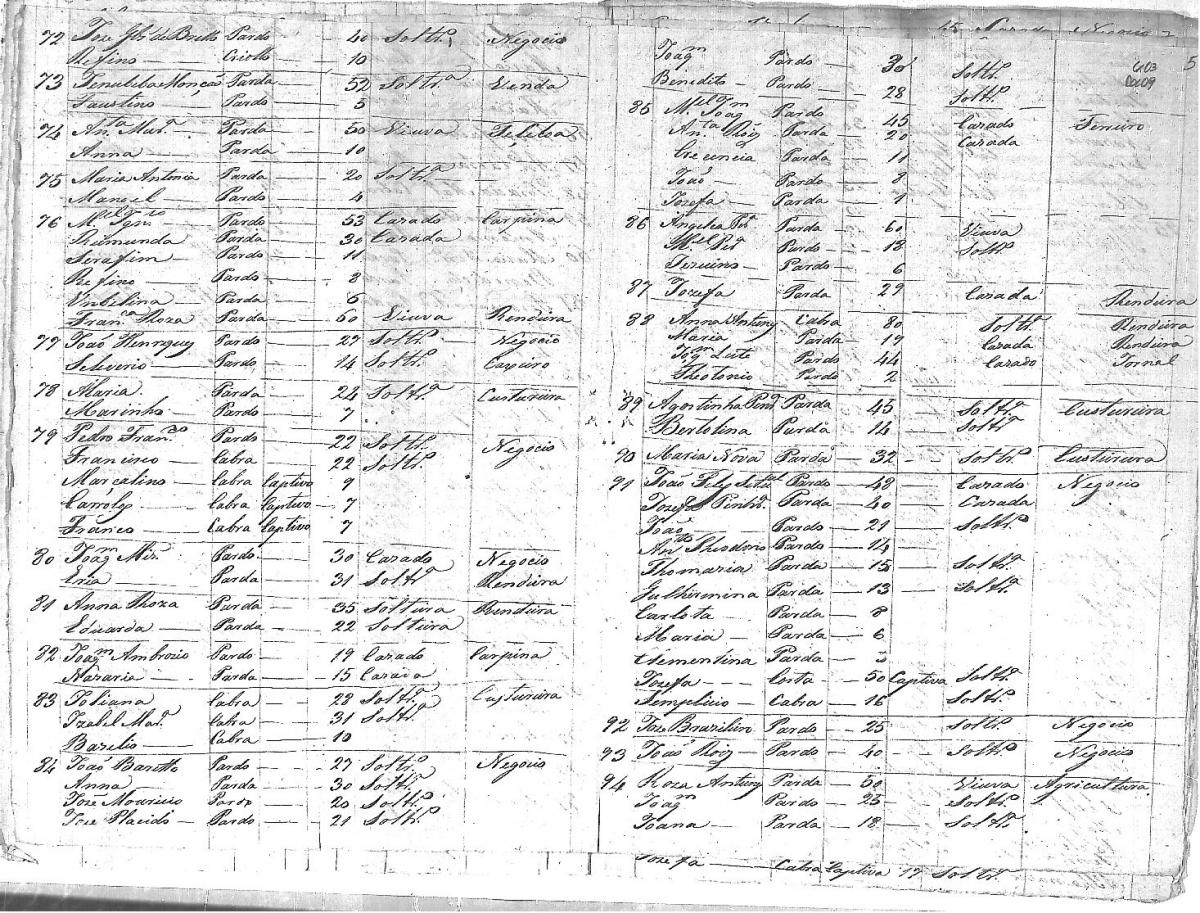 72 Joze Glz de Britto Pardo 40 Soltr.º Negocio
Refino Criollo 10
73 Parda 52 Soltr.ª Venda
Faustino Pardo 5
74 An.ta Mar.ª Parda 50 Viuva
Anna Parda 10
75 Maria Antonia Parda 20 Soltr.ª
Manoel Pardo 4
76 M.el Ign.cio Pardo 53 Cazado Carpina
Rimunda Parda 30 Cazada
Serafim Pardo 11
Refino Pardo 8
Unbilina Parda 6
Fran.ca Roza Parda 60 Viuva Rendura
77 João Henrequez Pardo 27 Soltr.º Negocio
Seleverio Pardo 14 Soltr.º
78 Maria Parda 24 Soltr.ª Custureira
Marinho Pardo 7
79 Pedro Fran.co Pardo 22 Soltr.º Negocio
Francisco Cabra 22 Soltr.º
Marcalino Cabra Captivo 9
Carrolo Cabra Captivo 7
Franco Cabra Captivo 7
80 Joaq.m Mir.ª Pardo 30 Cazado Negocio
Eria Parda 31 Soltr.ª Rendura
81 Anna Roza Parda 35 Soltura Rendura
Eduarda Parda 22 Soltura
82 Joaq.m Ambrozio Pardo 19 Cazado Carpina
Nazaria Parda 15 Cazada
83 Joliana Cabra 28 Soltr.ª Custureira
Izabel Mar.ª Cabra 31 Soltr.ª
Bazilio Cabra 10
84 João Baretto Pardo 27 Soltr.º Negocio
Anna Parda 30 Soltr.ª
José Mouricio Pardo 20 Soltr.º
Joze Placido Pardo 21 Soltr.º
5
Joaq.m Pardo 30 Soltr.º
Benedito Pardo 28 Soltr.º
85 M.el Joaq.m 45 Cazado Ferreiro
An.ta Roiz Parda 20 Cazada
Parda 11
João Pardo 8
Jozefa Parda 1
86 Angelica Per.ª Parda 60 Viuva
M.el Per.ª Pardo 18 Soltr.º
Pardo 6
87 Jozefa Parda 29 Cazada Rendura
88 Anna Antunz Cabra 80 Soltr.ª Rendura
Maria Parda 19 Cazada Rendura
Joq.m Leite Pardo 44 Cazado Jornal
Theotonio Pardo 2
89 Agostinha Per.ª Parda 45 Soltr.ª Custureira
Bertolina Parda 14 Soltr.ª
90 Maria Nova Parda 32 Soltr.ª Custureira
91 João Pardo 48 Cazado Negocio
Jozefa Pinhr.ª Parda 40 Cazada
João Pardo 21 Soltr.º
An.to Theodorio Pardo 14
Thomazia Parda 15 Soltr.ª
Guilhirmina Parda 13 Soltr.ª
Carlota Parda 8
Maria Parda 6
Clementina Parda
Jozefa Costa 50 Captiva Soltr.ª
Semplicio Cabra 16 Soltr.º
92 Joze Brazileiro Pardo 25 Soltr.º Negocio
93 João Roiz Pardo 40 Soltr.º Negocio
94 Roza Antunz Parda 50 Viuva Agricultura
Joaq.m Pardo 25 Soltr.º
Joana Parda 18 Soltr.ª
Jozefa Cabra Captiva 17 Soltr.ª